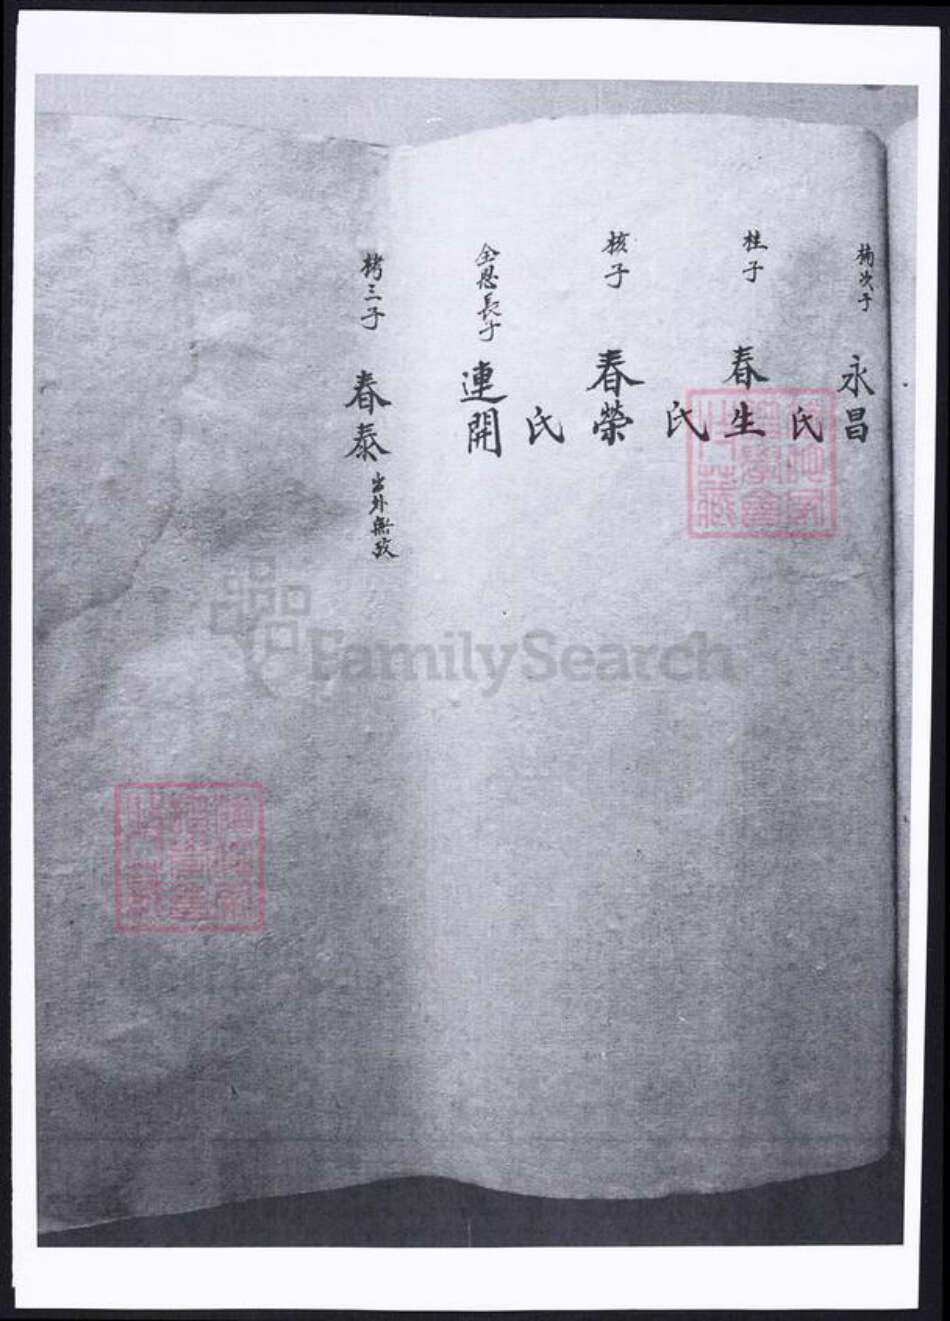 楠次子
永昌
氏
桂子
春生
氏
核子
春榮
氏
全恩長子
連開
三子
春泰
出外無孜
FamilySearch